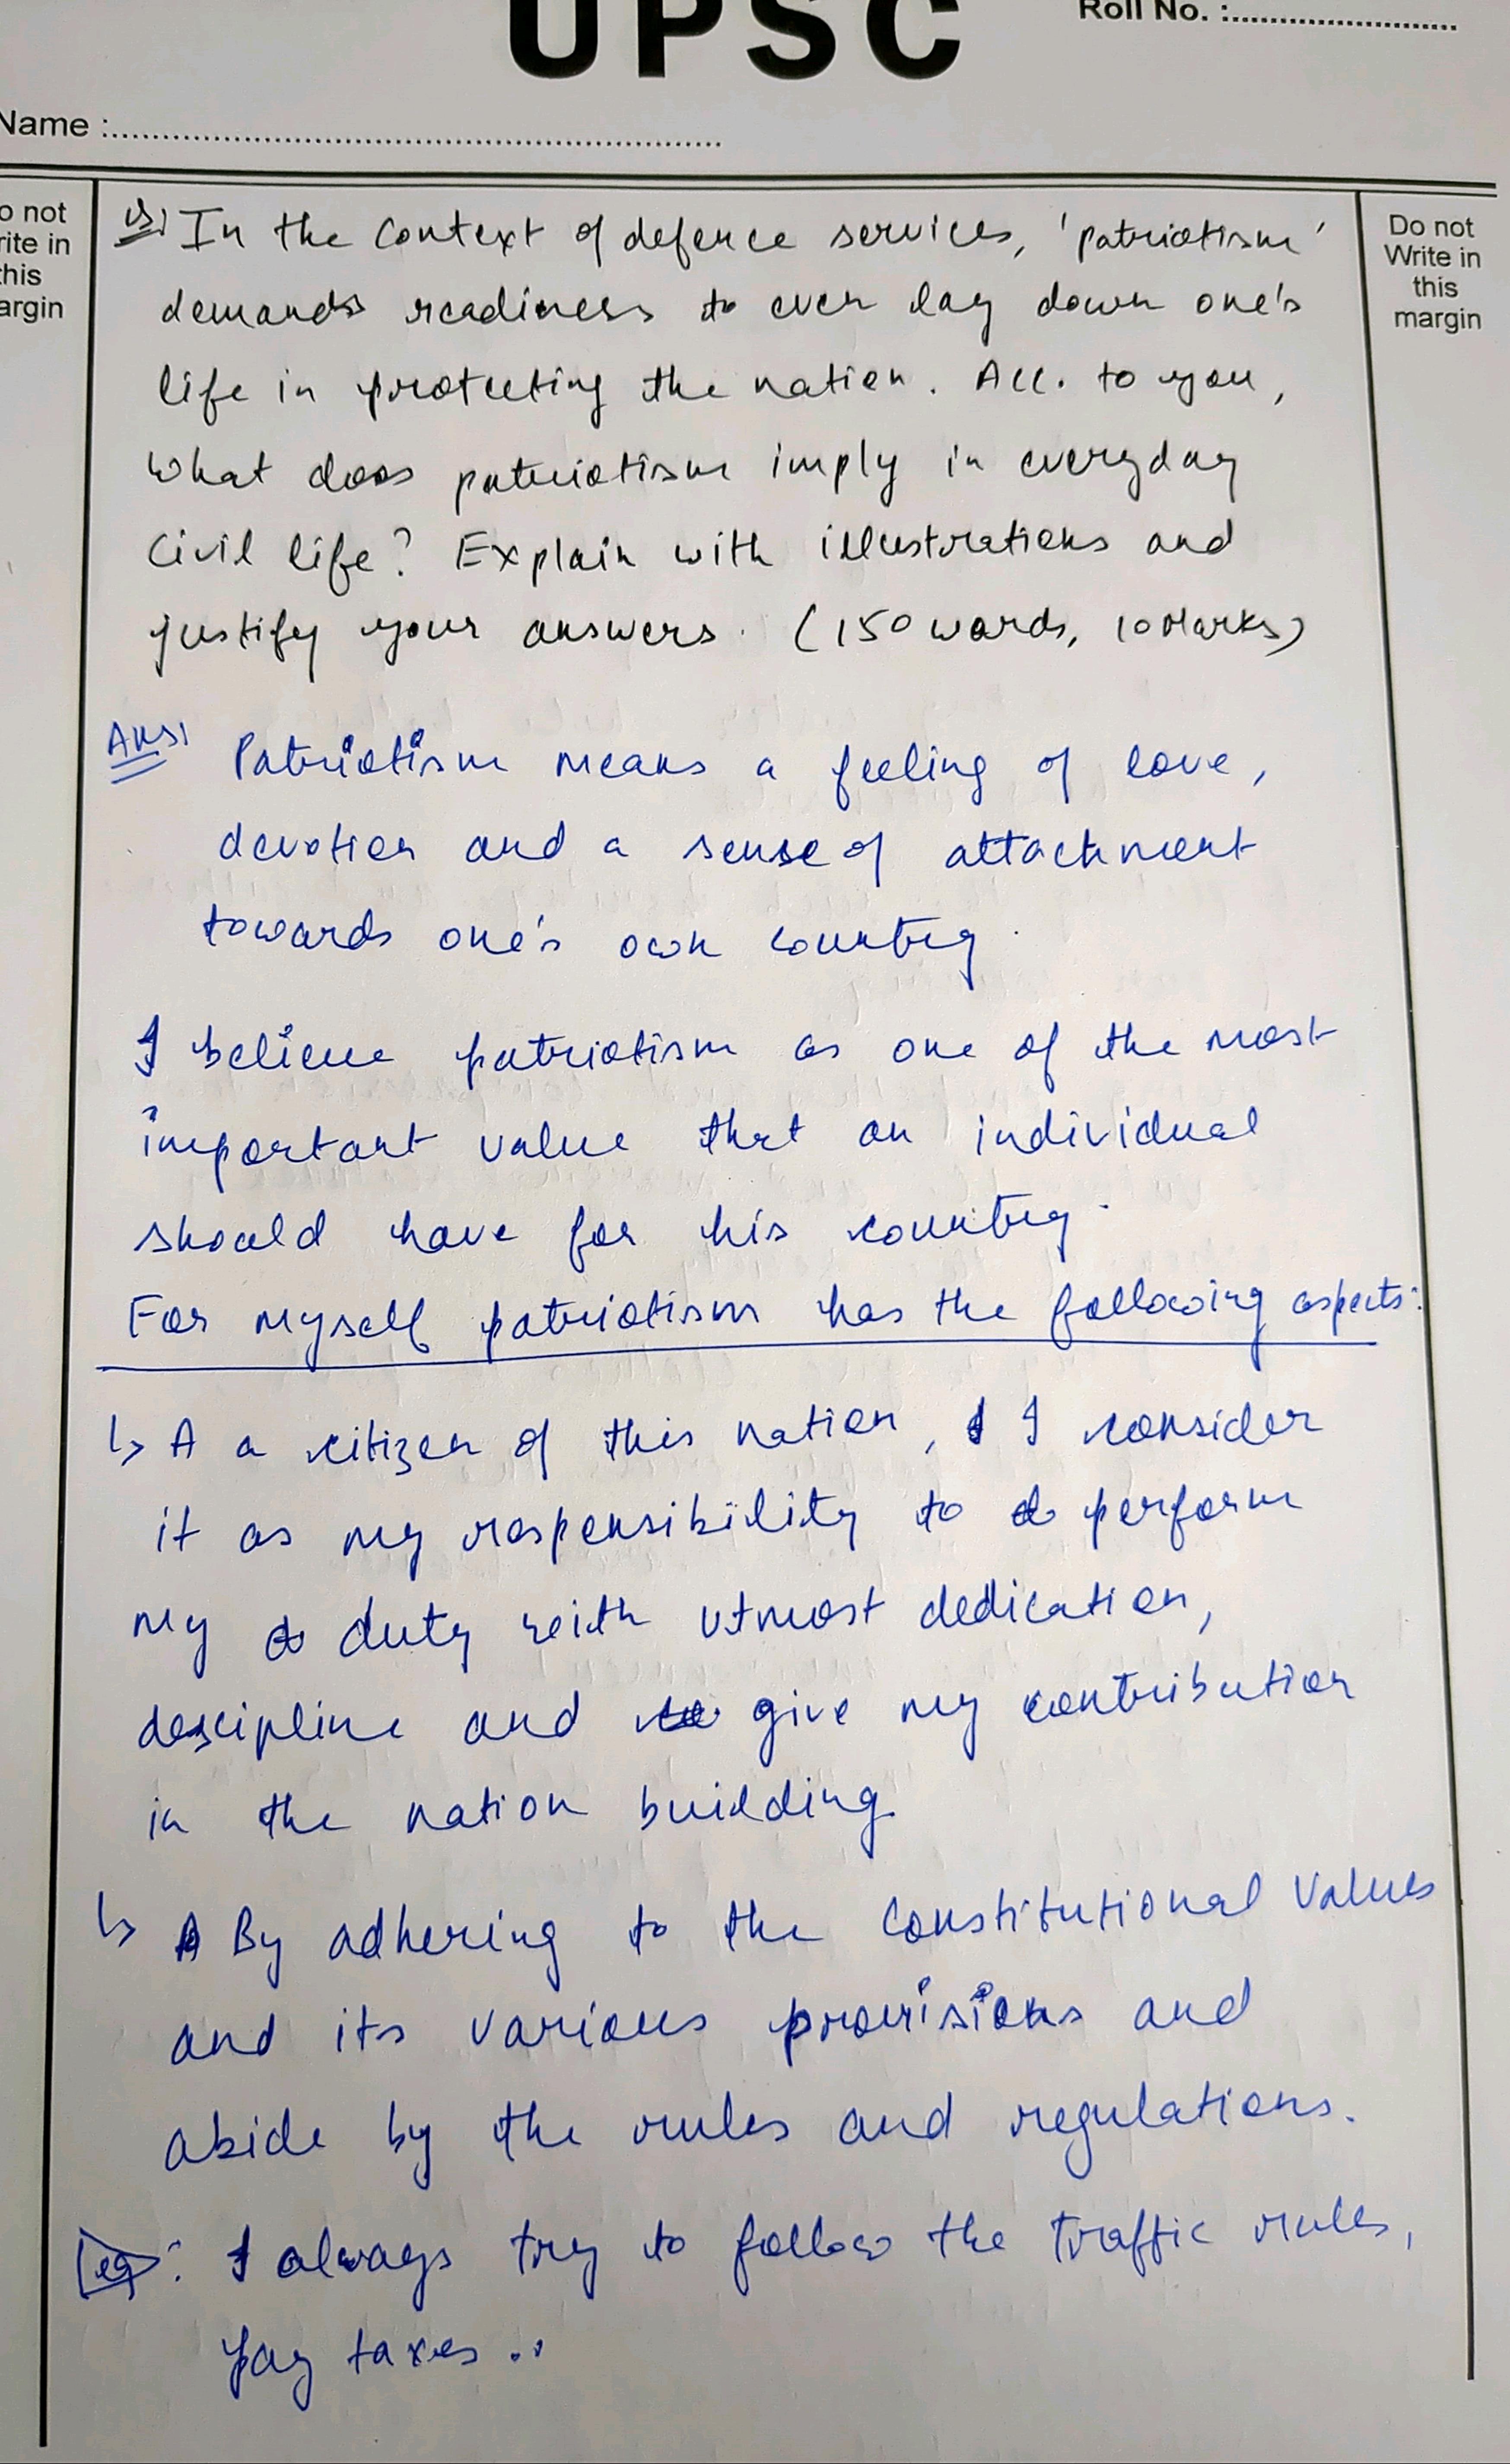 UPSC
Roll No. :
Name :
o not
rite in
this
argin
Do not
Write in
this
margin
In the context of defence services, 'patriotism'
demands readiness to even lay down one's
life in protecting the nation. Acc. to you,
what does patriotism imply in everyday
civil life? Explain with illustrations and
justify your answers. (150 words, 10 Marks)
Ans) Patriotism means a feeling of love,
devotion and a sense of attachment
towards one's own country.
I believe patriotism as one of the most
important value that an individual
should have for his country.
For myself patriotism has the following aspects:
↳ A a citizen of this nation, I consider
it as my responsibility to perform
my duty with utmost dedication,
descipline and give my contribution
in the nation building.
↳ By adhering to the constitutional values
and its various provisions and
abide by the rules and regulations.
eg: I always try to follow the traffic rules,
pay taxes..